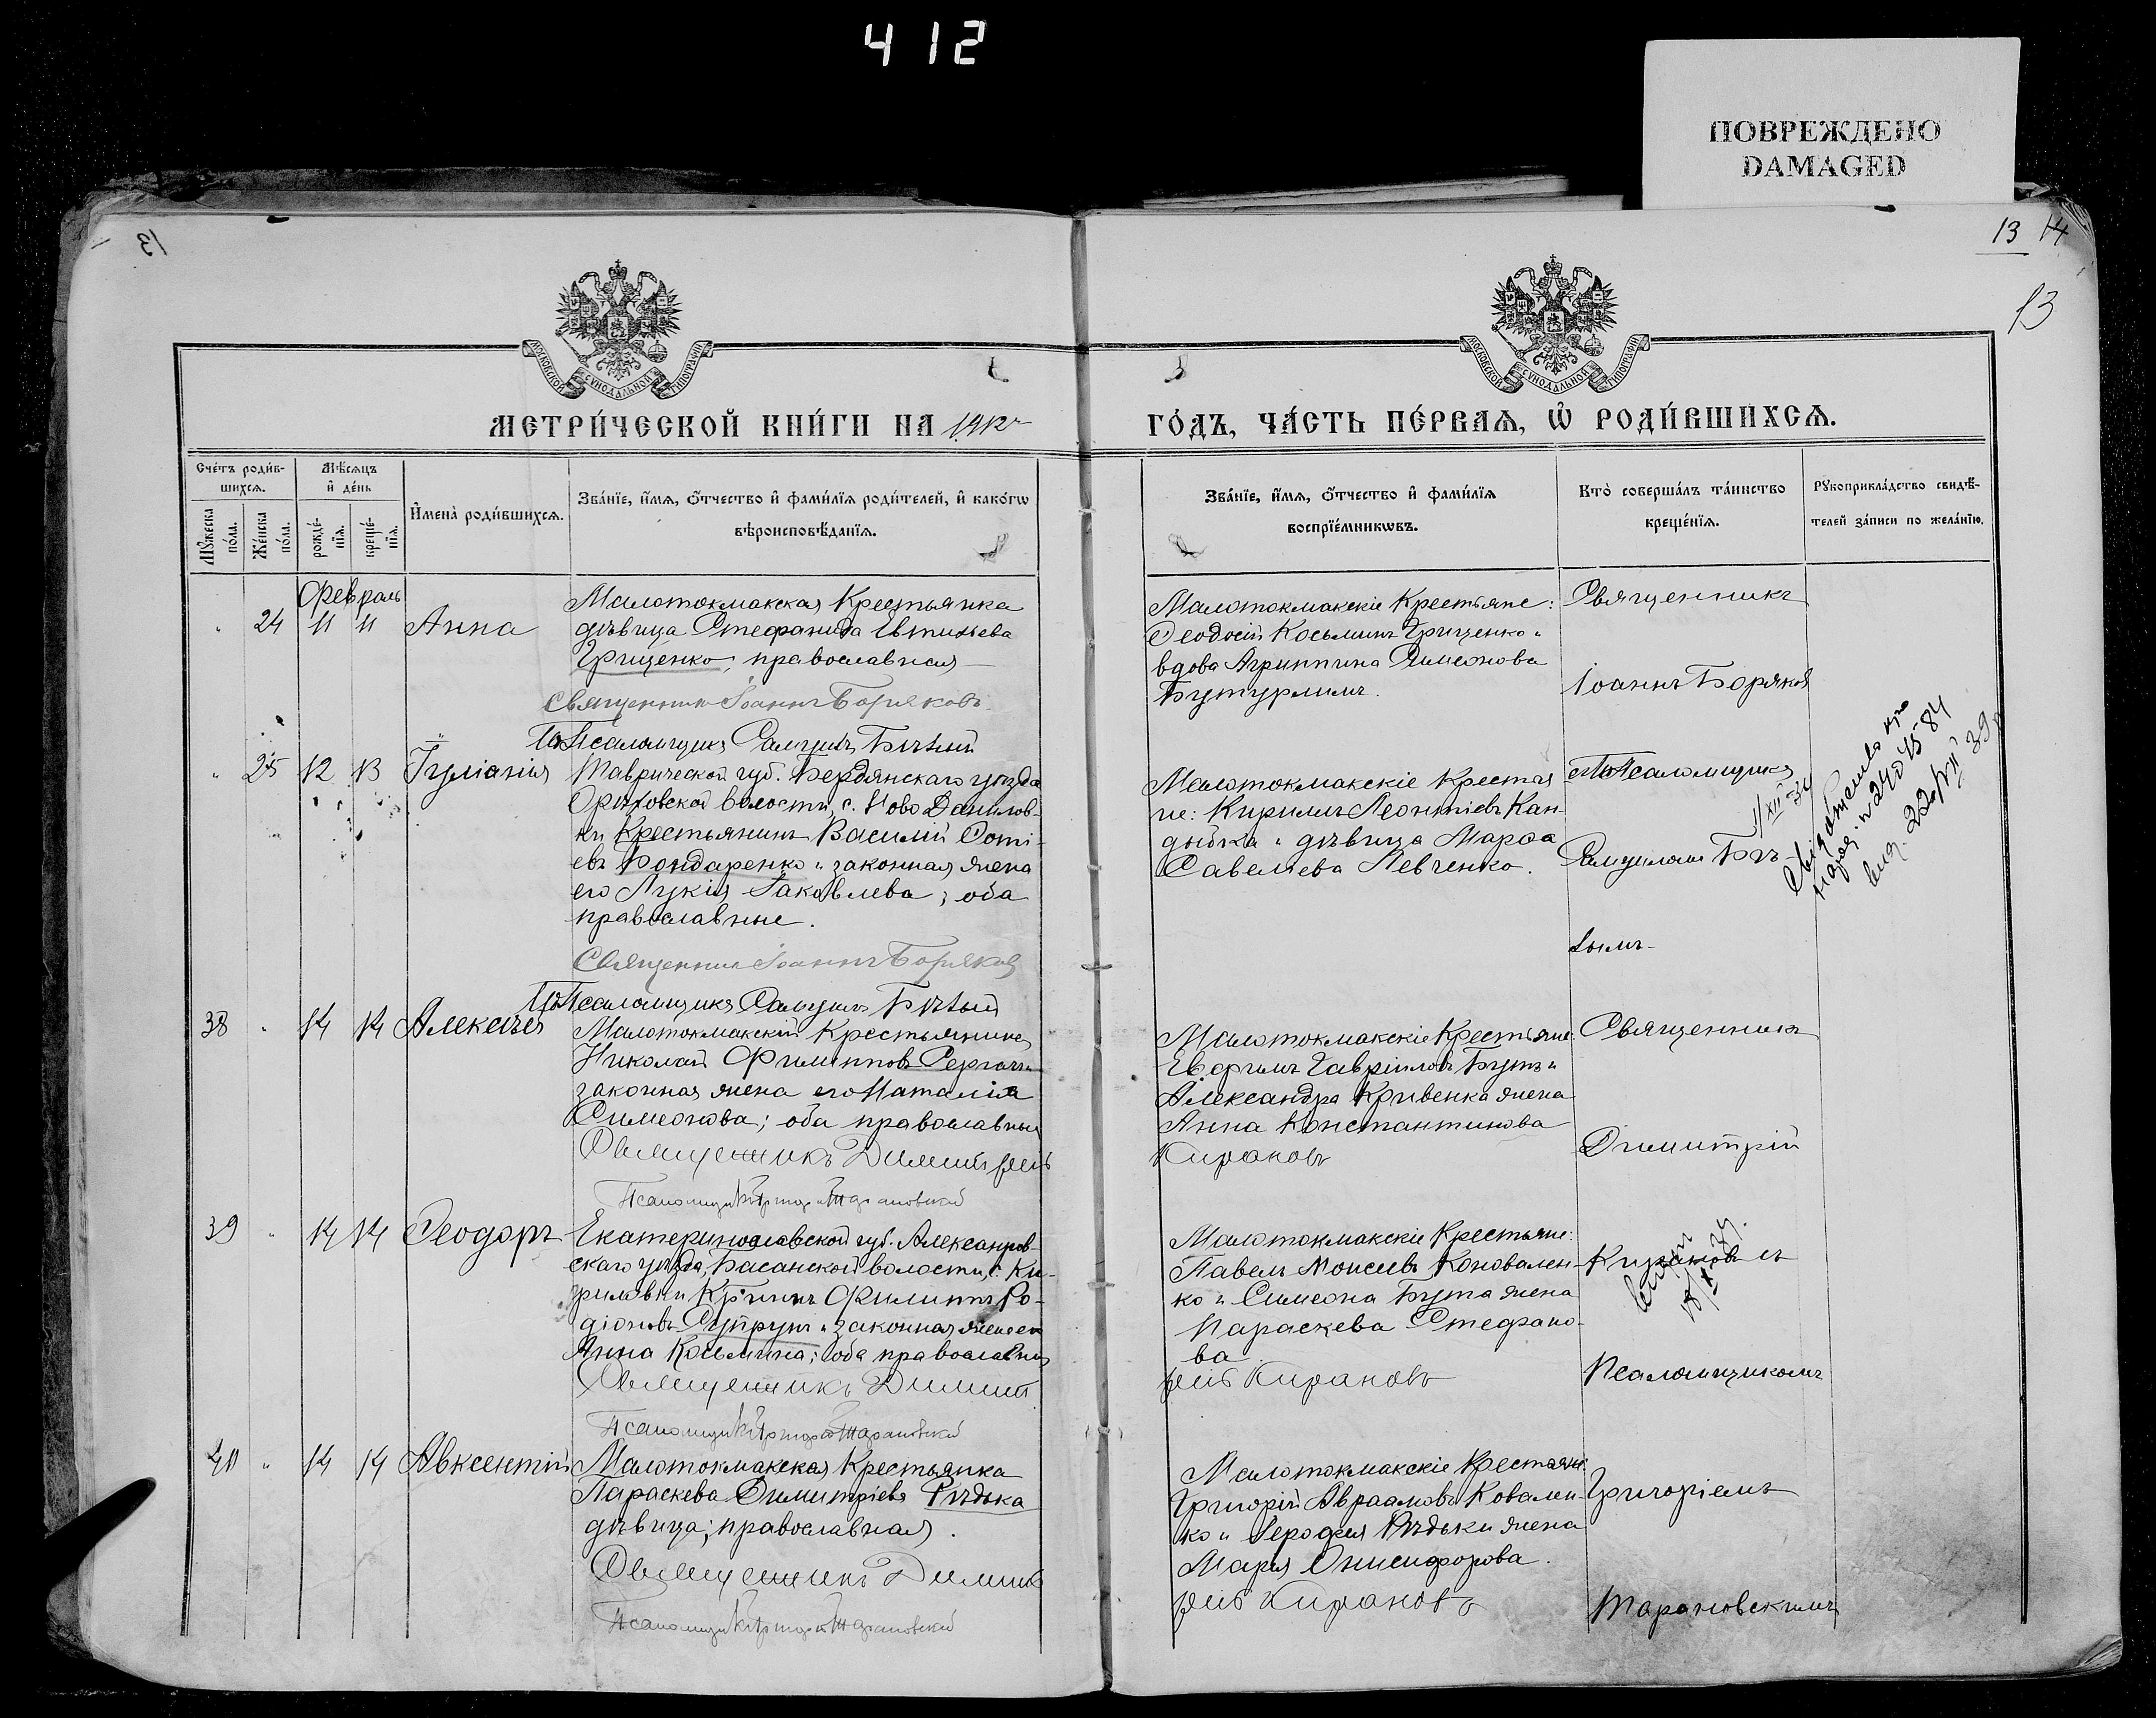 412
ПОВРЕЖДЕНО
DAMAGED
13
13 14
13
МОСКОВСКОЙ СѴНОДАЛЬНОЙ ТИПОГРАФІИ
МОСКОВСКОЙ СѴНОДАЛЬНОЙ ТИПОГРАФІИ
МЕТРИ́ЧЕСКОЙ КНИ́ГИ НА 1912
ГО́ДЪ, ЧА́СТЬ ПЕ́РВАѦ, Ѡ҆ РОДИ́ВШИХСѦ.
Сче́тъ роди́в-
шихсѧ.
Мѣ́сѧцъ
и҆ де́нь
Мꙋ́жеска
по́ла.
Же́нска
по́ла.
рожде́-
нїѧ.
креще́-
нїѧ.
И҆мена̀ роди́вшихсѧ.
Зва́нїе, и҆́мѧ, ѻ҆́тчество и҆ фами́лїѧ роди́телей, и҆ како́гѡ
вѣроисповѣ́данїѧ.
Зва́нїе, и҆́мѧ, ѻ҆́тчество и҆ фами́лїѧ
воспрїе́мникѡвъ.
Кто̀ соверша́лъ та́инство
креще́нїѧ.
Рꙋкоприкла́дство свидѣ́-
телей за́писи по жела́нїю.
Февраль
24 11 11 Анна
Малотокмакская Крестьянка
дѣвица Стефанида Евтихьева
Грищенко; православная
Священникъ Іоаннъ Боряковъ
Псаломщикъ Самуилъ Бѣлый
Малотокмакскіе Крестьяне:
Ѳеодосій Косьминъ Грищенко и
вдова Агриппина Симеонова
Бутурлимъ.
Священникъ
Іоаннъ Боряковъ
25 12 13 Іуліанія
Таврической губ. Бердянскаго уѣзда
Орѣховской волости, с. Ново Данилов-
ки Крестьянинъ Василій Фоті-
евъ Бондаренко и законная жена
его Лукія Іаковлева; оба
православные.
Священникъ Іоаннъ Боряковъ
Псаломщикъ Самуилъ Бѣлый
Малотокмакскіе Крестья
не: Кириллъ Леонтіевъ Кан-
дыбка и дѣвица Марѳа
Савельева Левченко.
Псаломщикъ
Самуиломъ Бѣ-
лымъ
11/XII 34
22/VII 39
38 14 14 Алексѣй
Малотокмакскій Крестьянинъ
Николай Филипповъ Сергачъ и
законная жена его Наталія
Симеонова; оба православные
Священникъ Димитрій
Псаломщикъ Григорій Тарановскій
Малотокмакскіе Крестьяне:
Евфимъ Гавріиловъ Бутъ и
Александра Кривенка жена
Анна Константинова
Кирановъ
Священникъ
Димитрій
39 14 14 Ѳеодоръ
Екатеринославской губ. Александров-
скаго уѣзда, Басанской волости, с. Ки-
риловки Кр-нинъ Филиппъ Ро-
діоновъ Супрунъ и законная жена его
Анна Косьмина; оба православные
Священникъ Димит
Псаломщикъ Григорій Тарановскій
Малотокмакскіе Крестьяне:
Павелъ Моисеевъ Коновален-
ко и Симеона Бута жена
Параскева Стефано-
ва
рій Кирановъ
Кирановъ съ
Псаломщикомъ
40 14 14 Авксентій
Малотокмакская Крестьянка
Параскева Димитріева Рѣдька
дѣвица; православная.
Священникъ Димит
Псаломщикъ Григорій Тарановскій
Малотокмакскіе Крестьяне:
Григорій Авраамовъ Ковален-
ко и Іероѳея Рѣдьки жена
Марія Онисифорова.
рій Кирановъ
Григоріемъ
Тарановскимъ